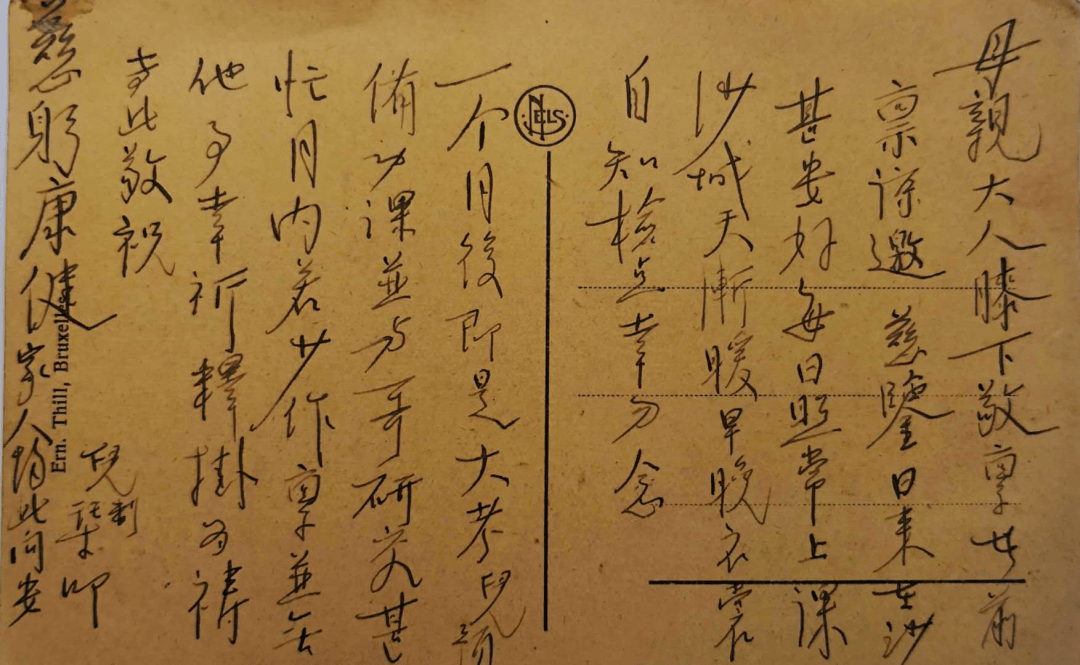 母親大人膝下敬稟者前
稟諒邀慈鑒日來在沙
甚安好每日照常上課
沙城天漸暖早晚衣裳
自知檢点幸勿念
NELS
一个月後即是大考兒預
備功課並与哥研究甚
忙月內若少作稟並無
他事幸祈釋掛為禱
耑此敬祝
慈躬康健 家人均此问安
兒
叩
Ern. Thill, Bruxelles